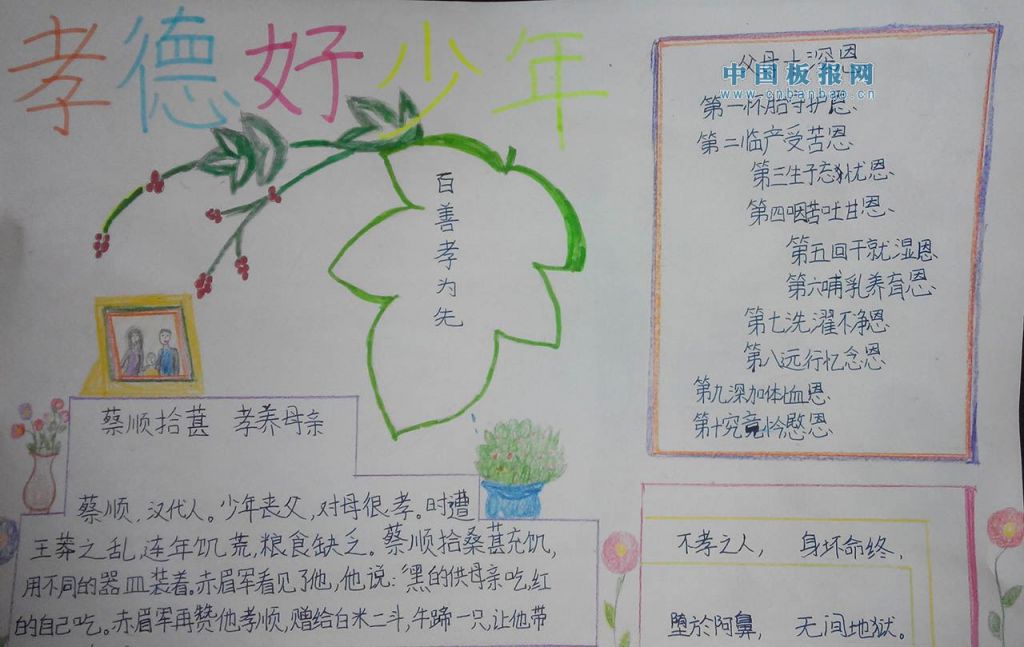 孝德好少年
百善孝为先
父母十深恩
中国板报网
www.cnbanbao.cn
第一怀胎守护恩、
第二临产受苦恩
第三生子忘忧恩、
第四咽苦吐甘恩、
第五回干就湿恩
第六哺乳养育恩、
第七洗濯不净恩
第八远行忆念恩
第九深加体恤恩
第十究竟怜愍恩
蔡顺拾葚 孝养母亲
蔡顺,汉代人。少年丧父,对母很孝。时遭
王莽之乱,连年饥荒,粮食缺乏。蔡顺拾桑葚充饥,
用不同的器皿装着。赤眉军看见了他,他说:“黑的供母亲吃,红
的自己吃。赤眉军再赞他孝顺,赠给白米二斗,牛蹄一只,让他带
不孝之人, 身坏命终,
堕於阿鼻, 无间地狱。